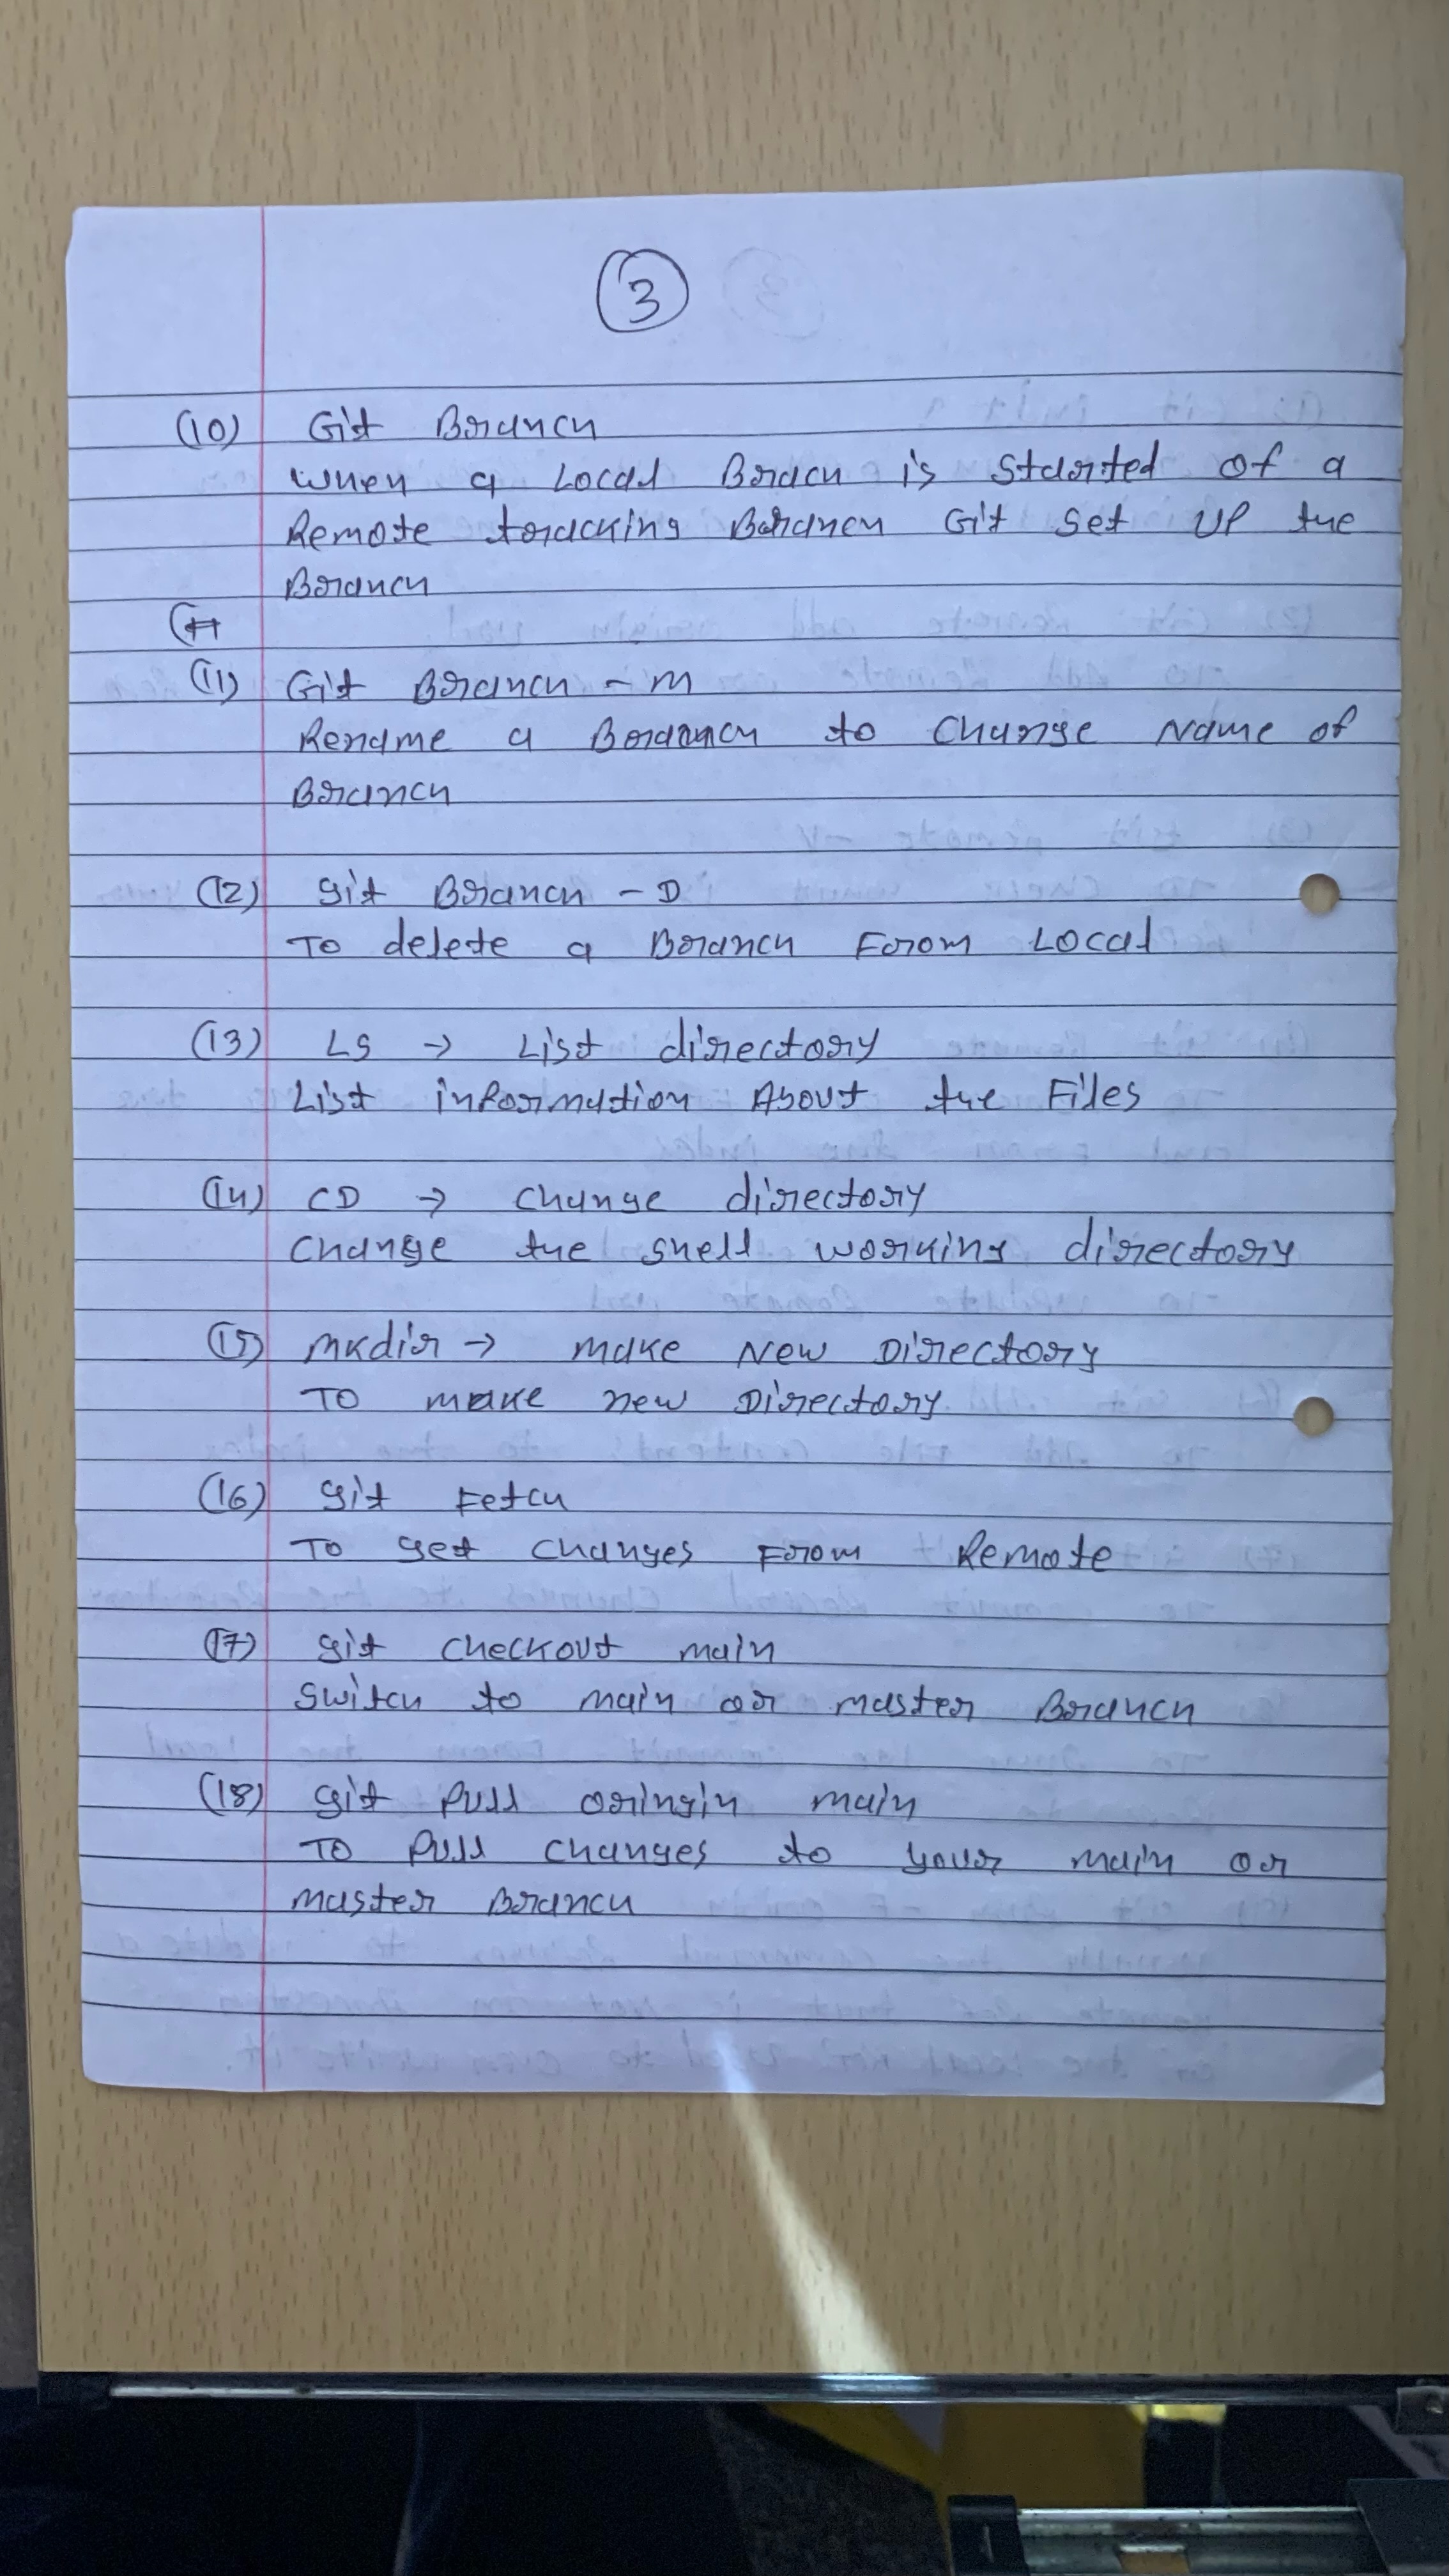 3
(10) Git Branch
When a Local Brach is Started of a
Remote tracking Baranch Git set UP the
Branch
(11) Git Branch - m
Rename a Branch to Change Name of
Branch
(12) git Branch - D
TO delete a Branch From Local
(13) LS → List directory
List information About the Files
(14) CD → change directory
change the shell working directory
(15) mkdir → make New Directory
TO make new Directory
(16) git Fetch
TO get changes From Remote
(17) git checkout main
switch to main or master Branch
(18) git Pull oringin main
TO Pull changes to your main or
master Branch